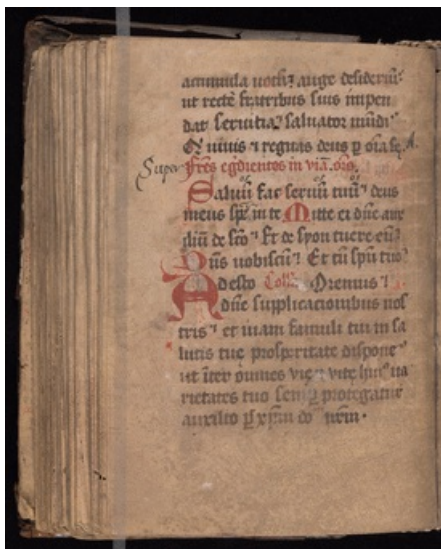 accumula uotis auge desideriū
ut recte fratribus suis impen
dat seruitia saluator mūdi
Q uiuis ⁊ regnas deus p oīa
Super frēs egredientes in viā. oro.
Saluū fac seruū tuū deus
meus spe in te Mitte ei dn̄e aux
iliū de sco Et de syon tuere eū
Dn̄s uobiscū Et cū spū tuo
Adesto Coll Oremus
dn̄e supplicacionibus nos
tris et uiam famuli tui in sa
lutis tue prosperitate dispone
ut iter omnes vie ⁊ vite huiꝰ ua
rietates tuo semꝑ protegatur
auxilio ꝑ xp̄m do nrm.